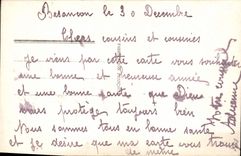 Besançon le 30 Decembre
Chers cousins et cousines
Je viens par cette carte vous souhaiter
une bonne et heureuse année
et une bonne santé que Dieu
vous protège toujours bien
Nous sommes tous en bonne santé
et Je désire que ma carte vous trouve
de même
Votre cousine